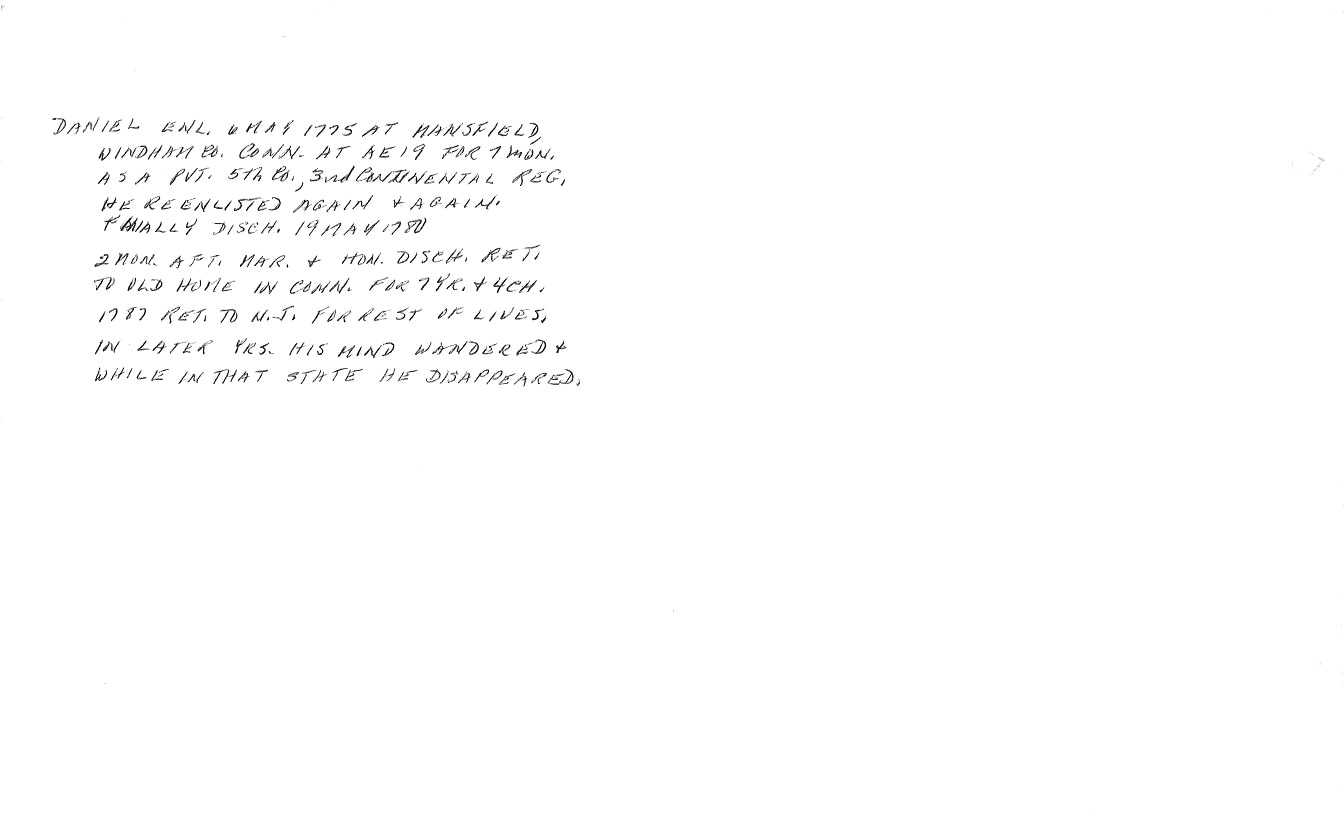 DANIEL ENL. 6 MAY 1775 AT MANSFIELD,
WINDHAM CO. CONN. AT AE 19 FOR 7 MON.
AS A PVT. 5th Co., 3rd CONTINENTAL REG.
HE REENLISTED AGAIN & AGAIN.
FINALLY DISCH. 19 MAY 1780
2 MON. AFT. MAR. & HON. DISCH. RET.
TO OLD HOME IN CONN. FOR 7 YR. & 4 CH.
1787 RET. TO N.J. FOR REST OF LIVES.
IN LATER YRS. HIS MIND WANDERED &
WHILE IN THAT STATE HE DISAPPEARED.